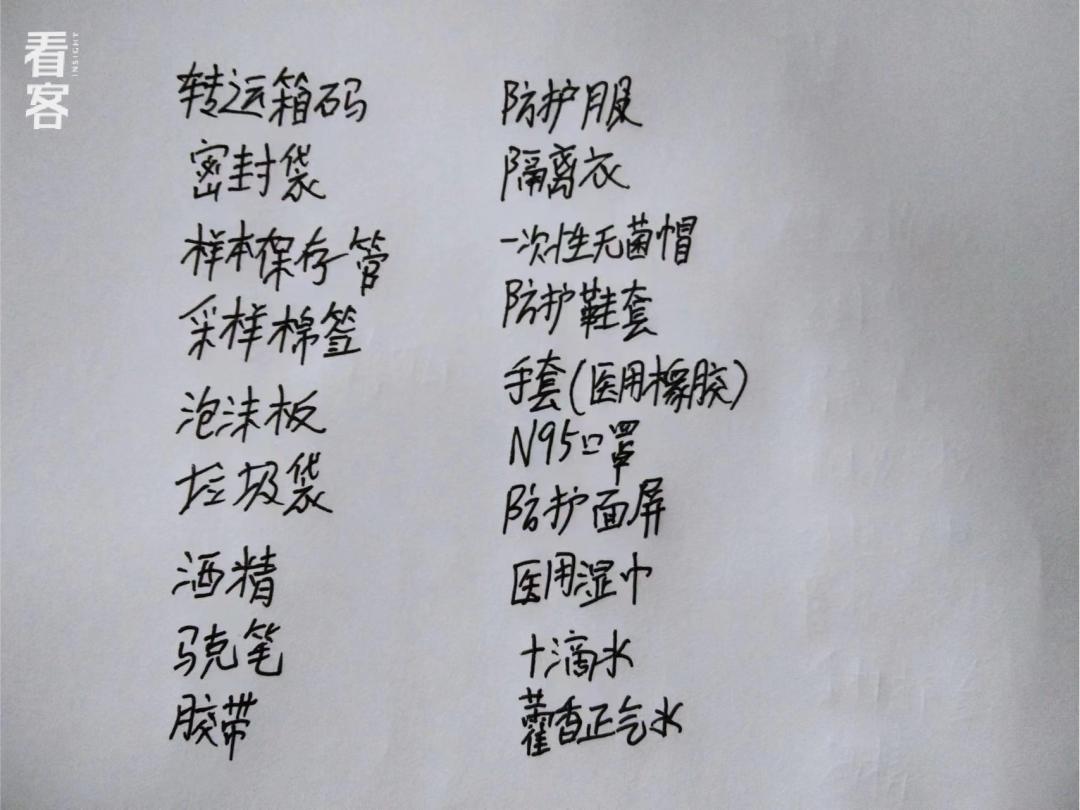 看客
INSIGHT
转运箱码
密封袋
样本保存管
采样棉签
泡沫板
垃圾袋
酒精
马克笔
胶带
防护服
隔离衣
一次性无菌帽
防护鞋套
手套(医用橡胶)
N95口罩
防护面屏
医用湿巾
十滴水
藿香正气水